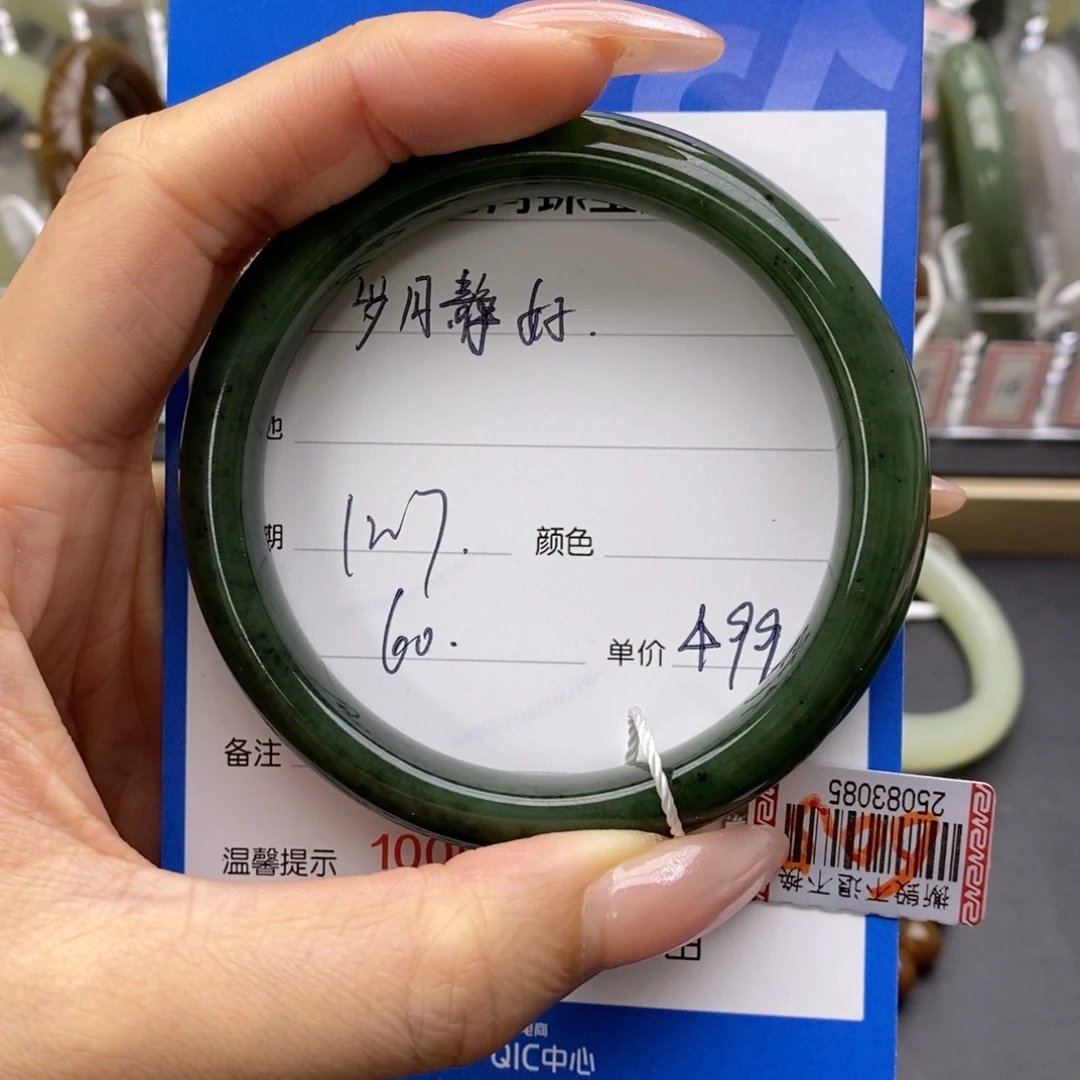 岁月静好.
期 127. 颜色
60. 单价 499
备注
温馨提示 100
25083085
撕毁不退不换
电商
QIC中心